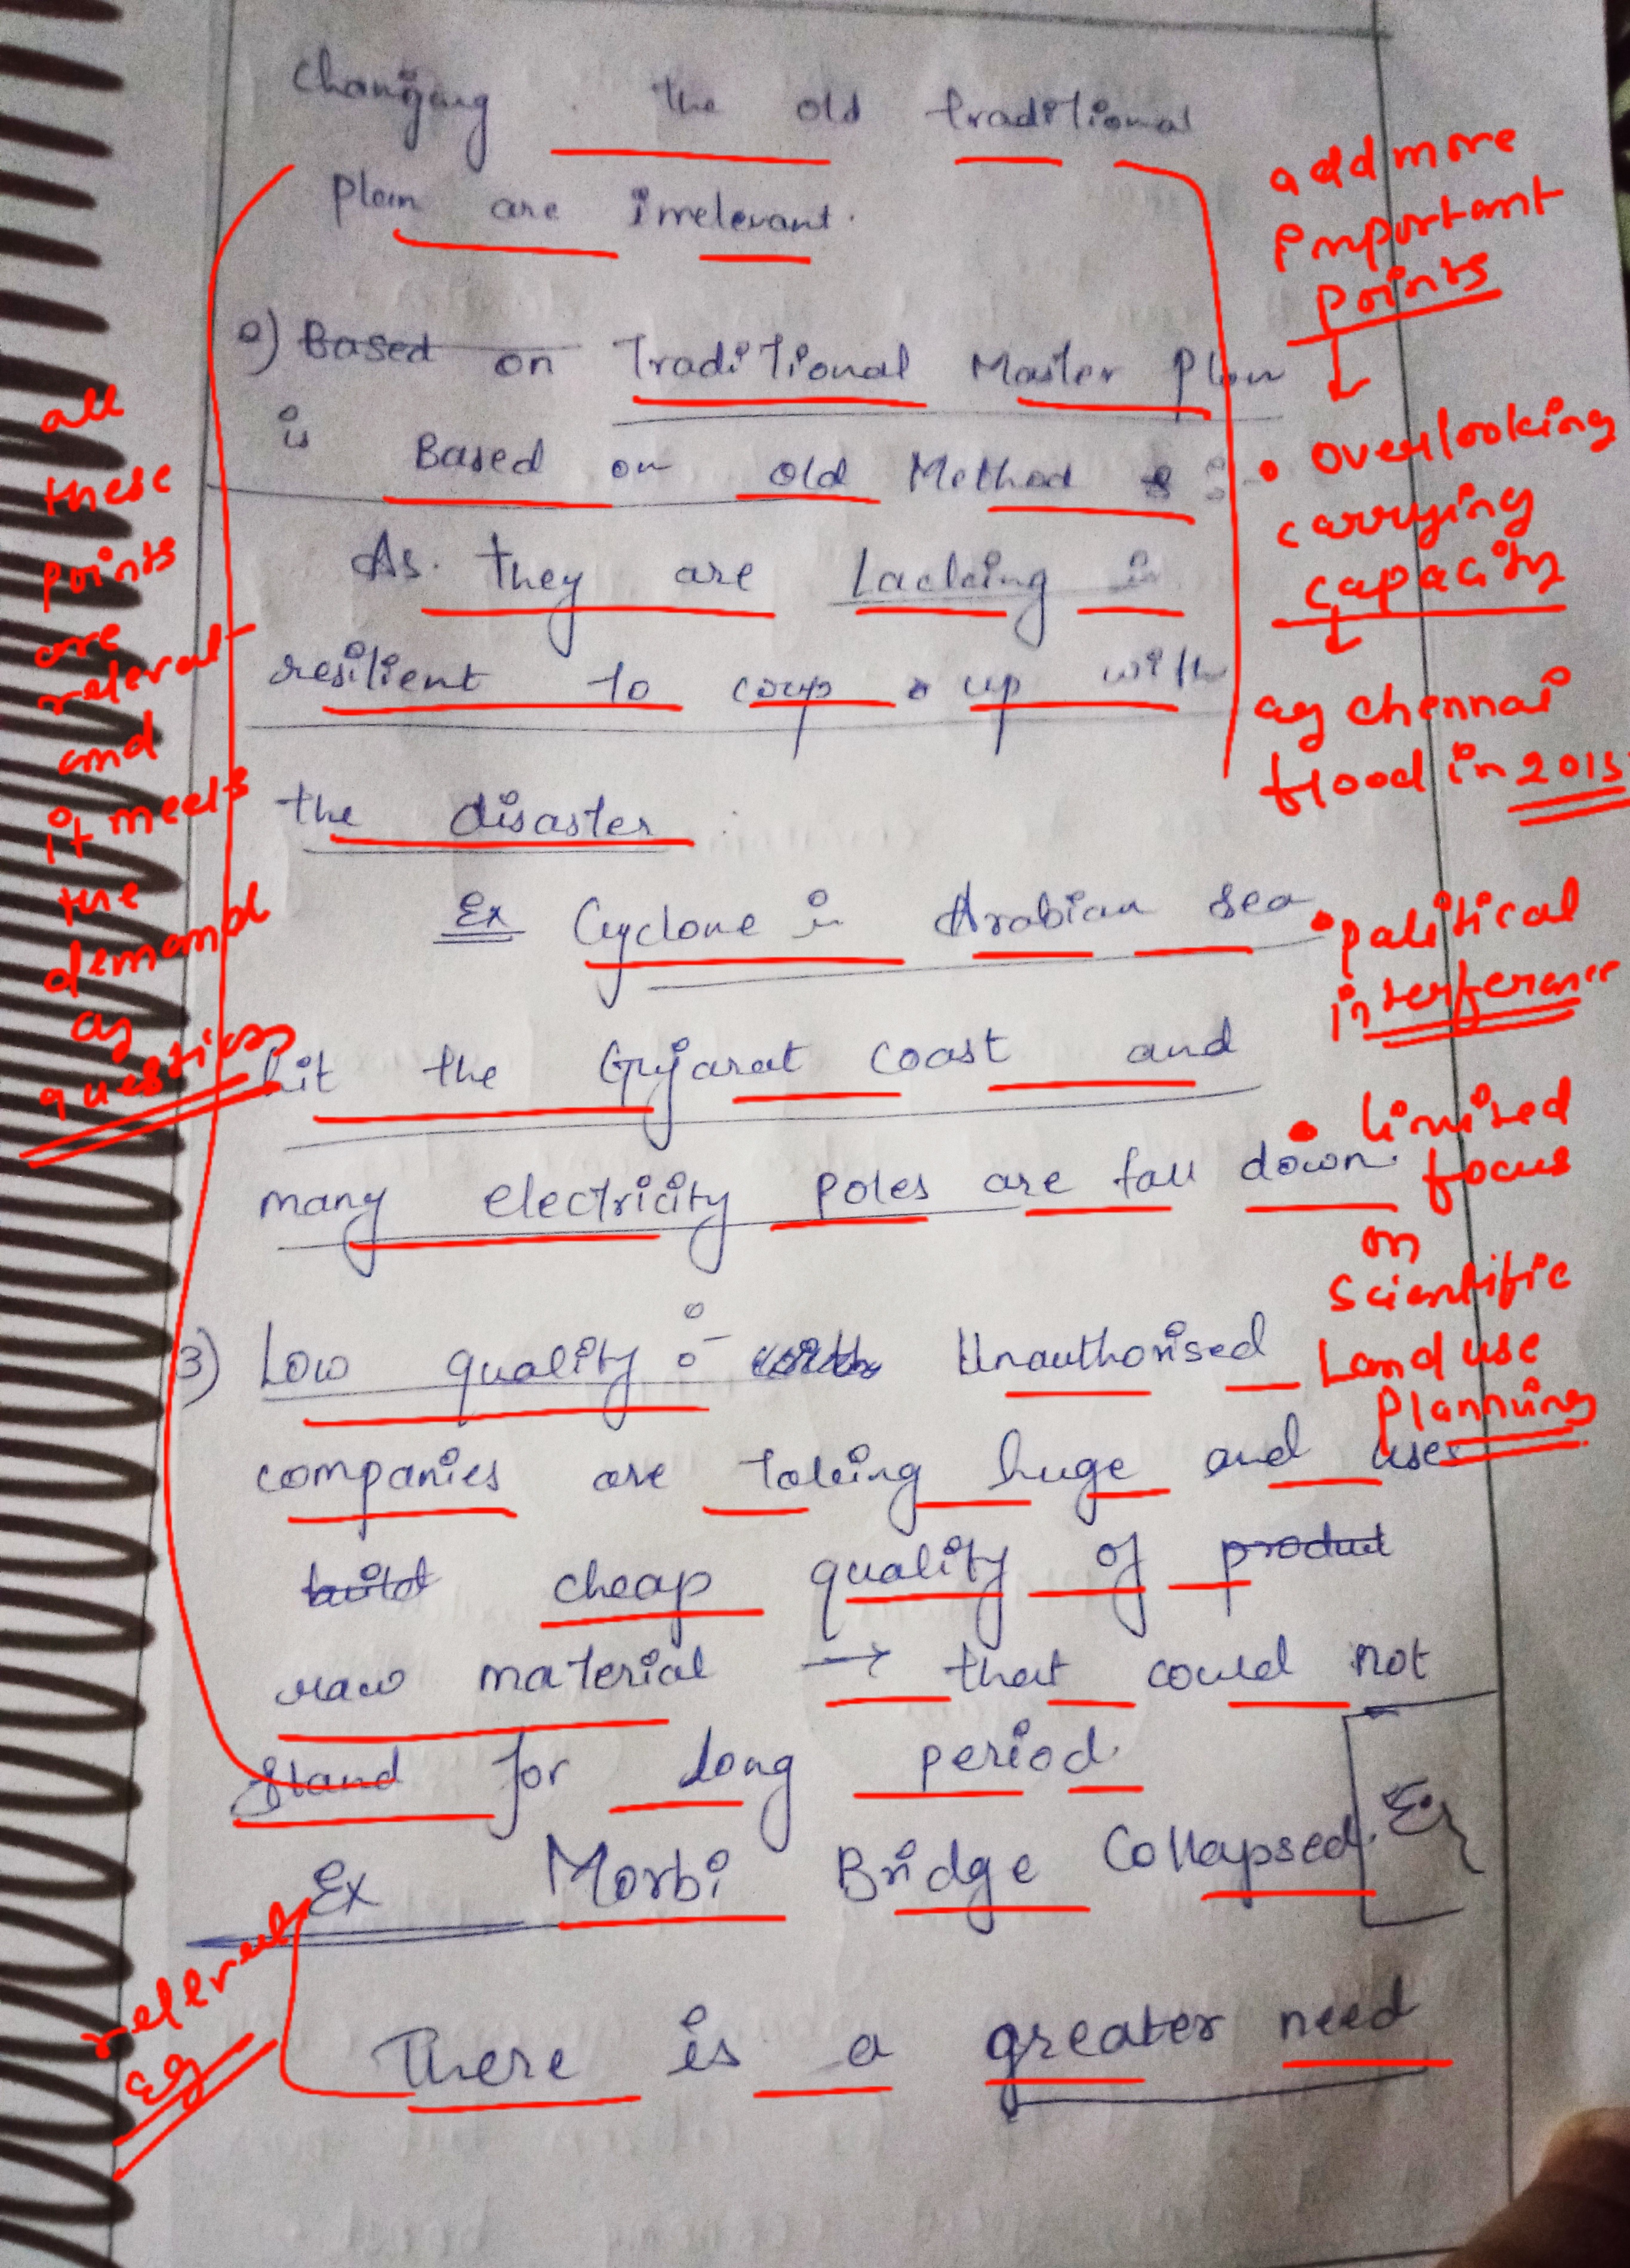 Changing the old traditional
plan are irrelevant.
2) Based on Traditional Master Plan
is Based on old Method :-
As. they are Lacking in
resilient to coup up with
the disaster
Ex Cyclone in Arabian sea
hit the Gujarat coast and
many electricity poles are fall down.
3) Low quality :- with Unauthorised
companies are taking huge and uses
build cheap quality of product
raw material → that could not
stand for long period.
Ex Morbi Bridge Collapsed.
Ex
There is a greater need
all
these
points
are
releval
and
it meets
the
demand
of
question
relevent
eg
add more
important
points
↓
• overlooking
carrying
capacity
↓
eg chennai
flood in 2015
• palitical
interference
• limited
focus
on
Scientific
Land use
Planning